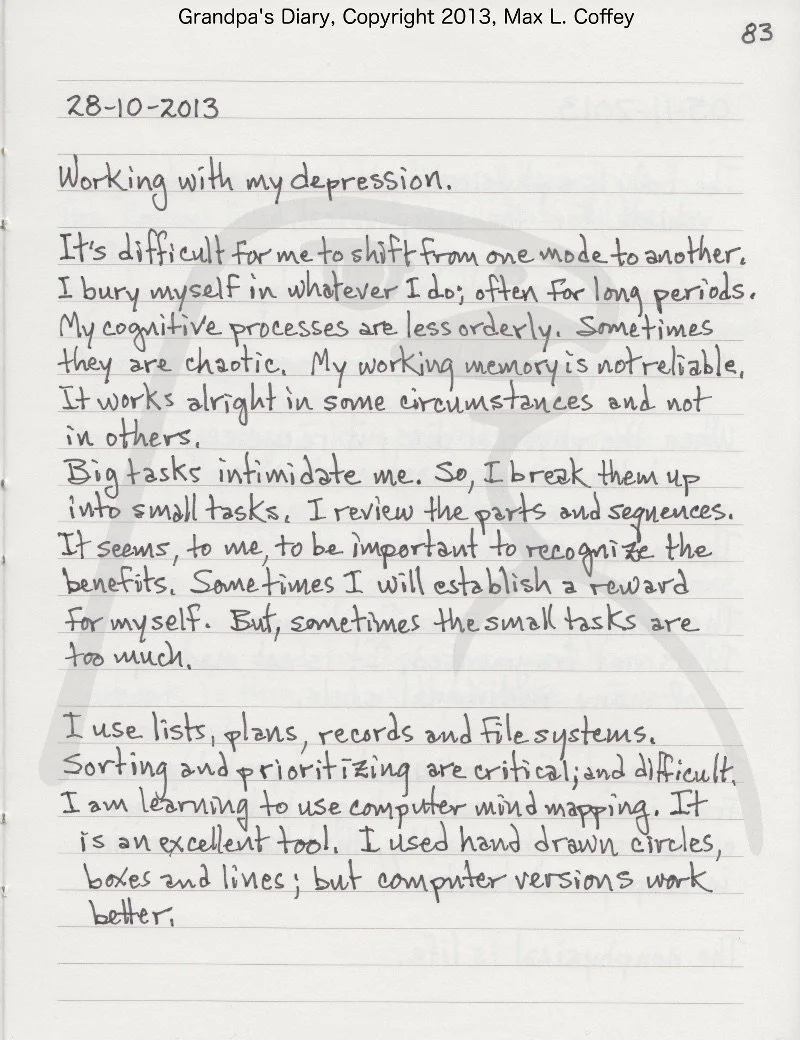 Grandpa's Diary, Copyright 2013, Max L. Coffey
83
28-10-2013
Working with my depression.
It's difficult for me to shift from one mode to another.
I bury myself in whatever I do; often for long periods.
My cognitive processes are less orderly. Sometimes
they are chaotic. My working memory is not reliable.
It works alright in some circumstances and not
in others.
Big tasks intimidate me. So, I break them up
into small tasks. I review the parts and sequences.
It seems, to me, to be important to recognize the
benefits. Sometimes I will establish a reward
for myself. But, sometimes the small tasks are
too much.
I use lists, plans, records and file systems.
Sorting and prioritizing are critical; and difficult.
I am learning to use computer mind mapping. It
is an excellent tool. I used hand drawn circles,
boxes and lines; but computer versions work
better.